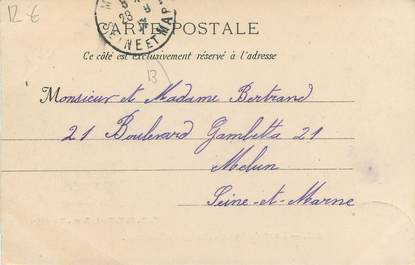 12 €
CARTE POSTALE
SEINE ET MAR
28
Ce côté est exclusivement réservé à l'adresse
13
Monsieur et Madame Bertrand
21 Boulevard Gambetta 21
Melun
Seine-et-Marne